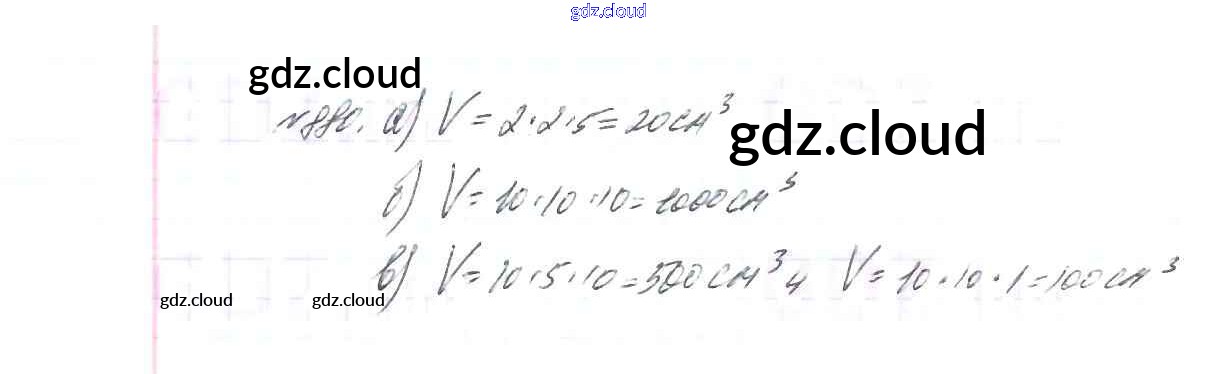 gdz.cloud
gdz.cloud
№880. а) V = 2·2·5 = 20 см³
gdz.cloud
б) V = 10·10·10 = 1000 см³
в) V = 10·5·10 = 500 см³ и V = 10·10·1 = 100 см³
gdz.cloud gdz.cloud